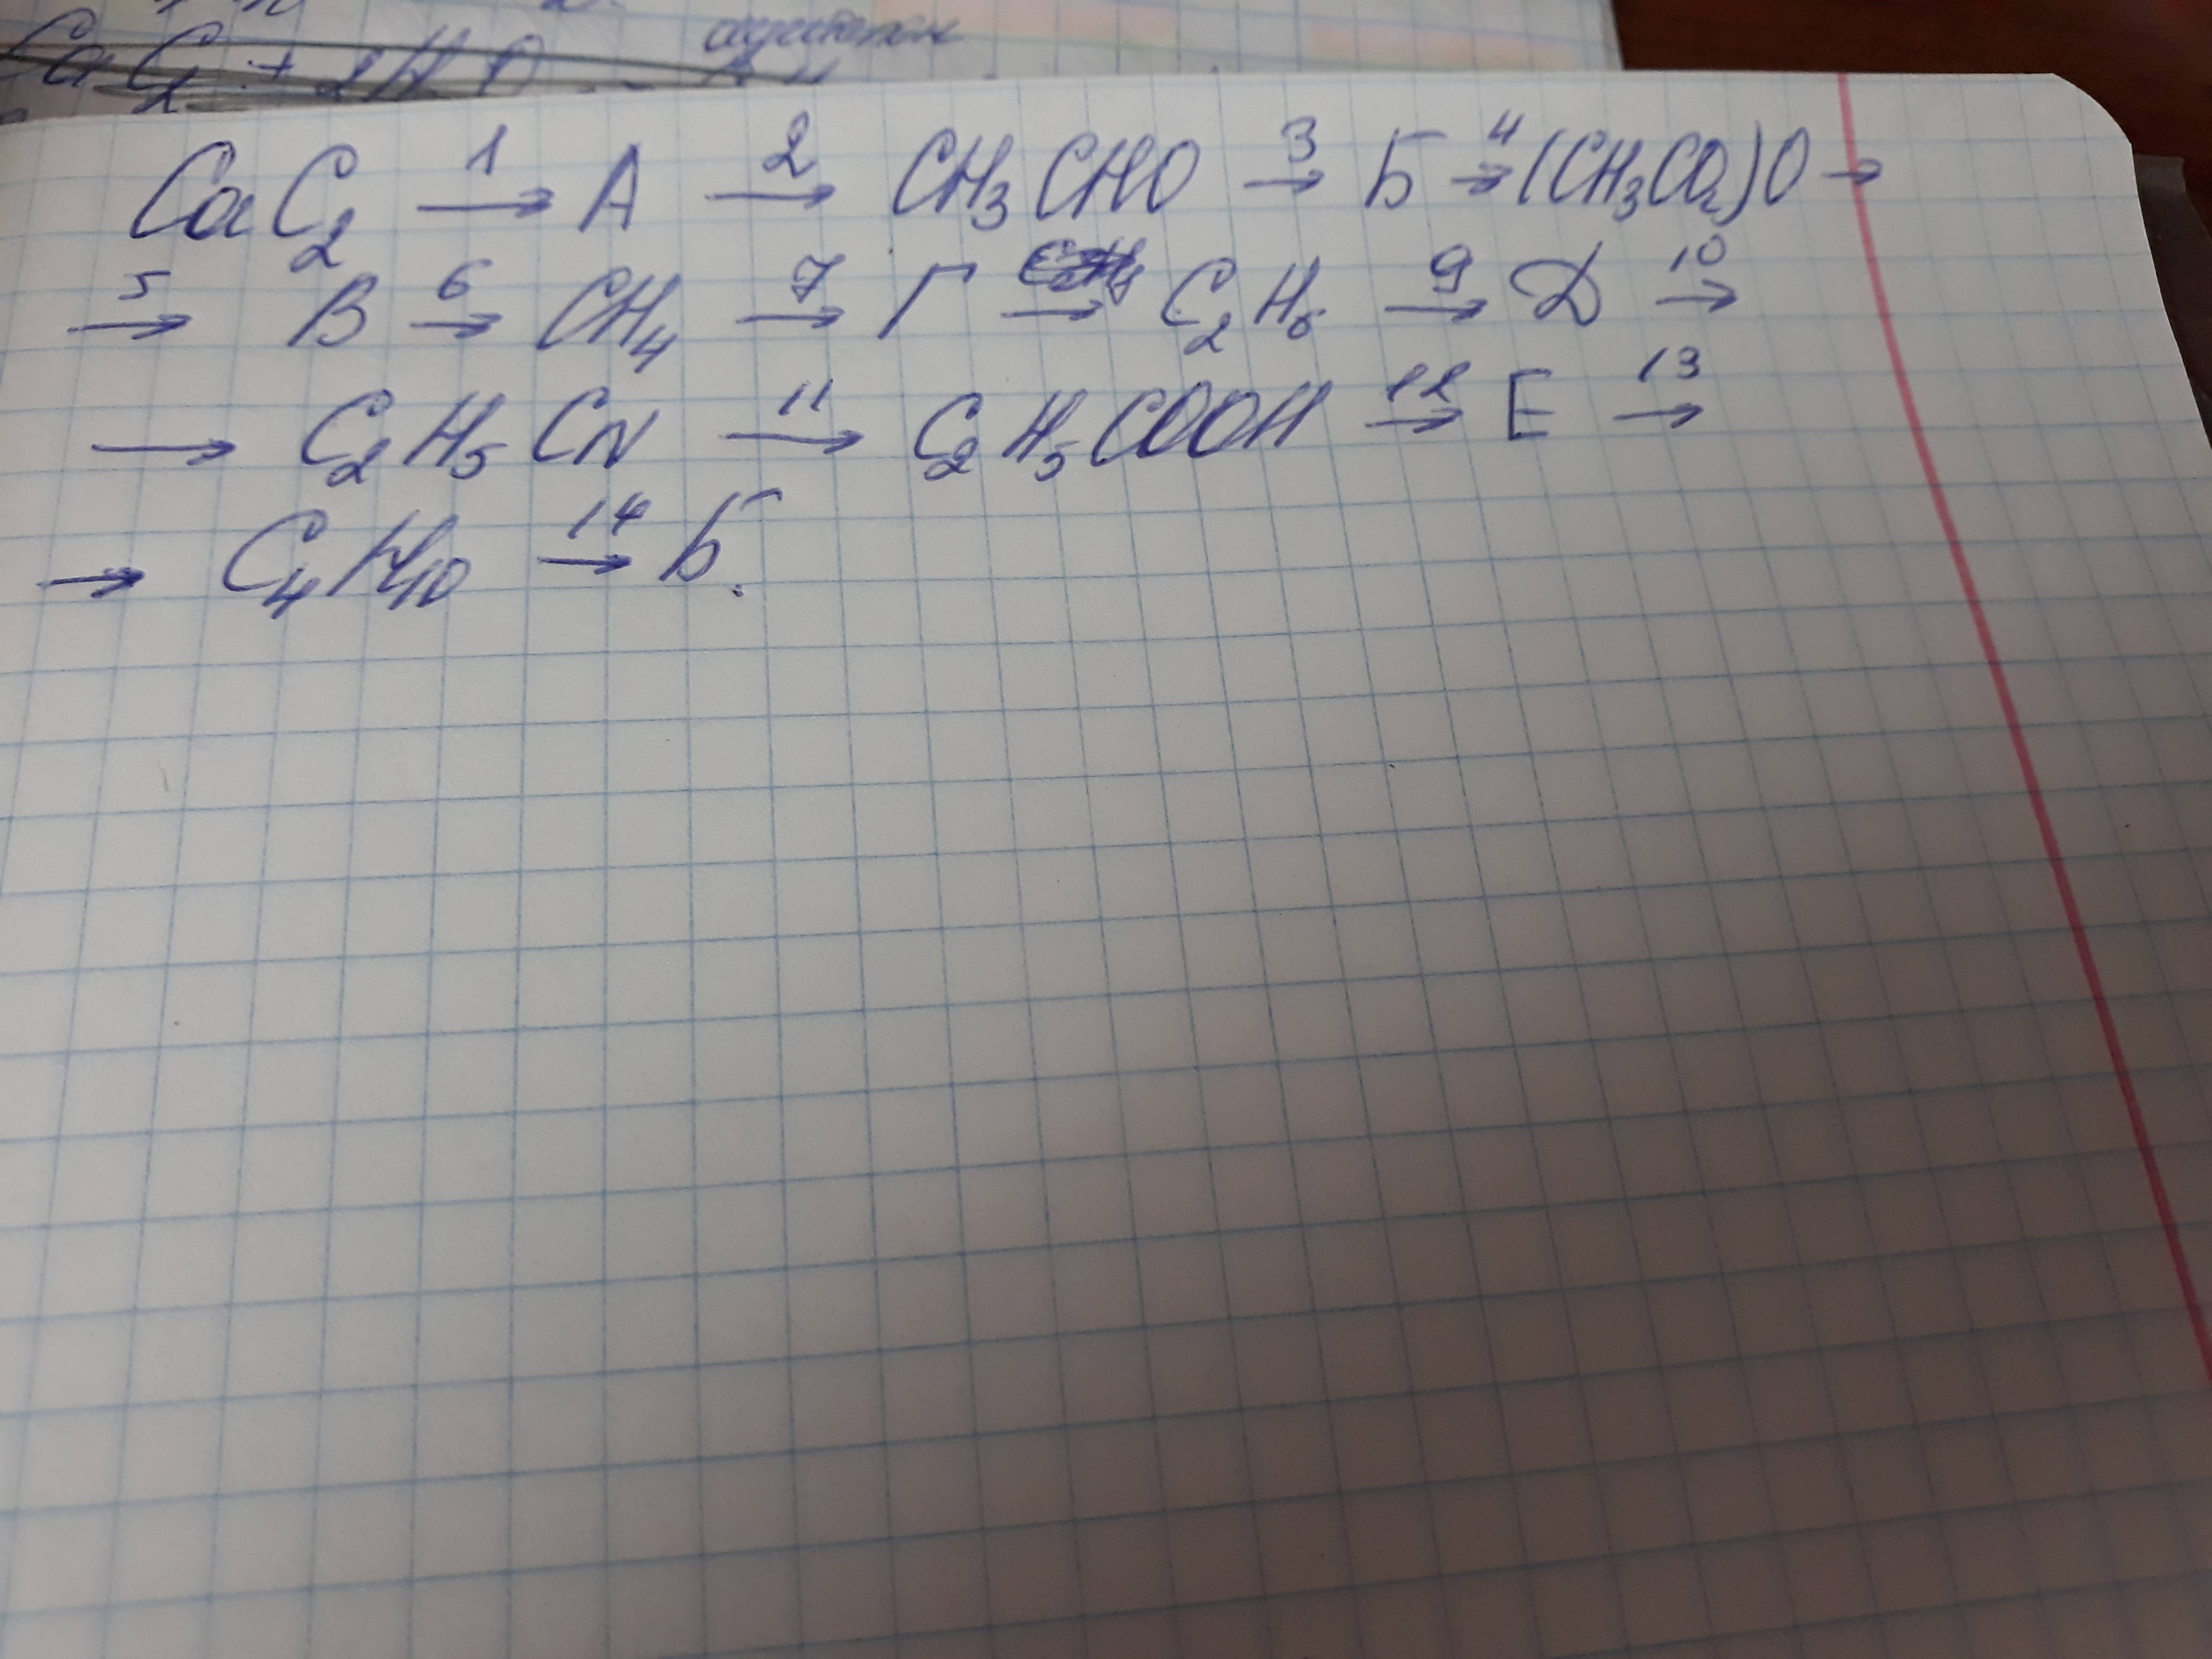 CaC2 + 2H O
CaC2 1→ A 2→ CH3CHO 3→ Б 4→ (CH3CO2)O →
5→ В 6→ CH4 7→ Г → C2H6 9→ Д 10→
→ C2H5CN 11→ C2H5COOH 12→ Е 13→
→ C4H10 14→ Б.